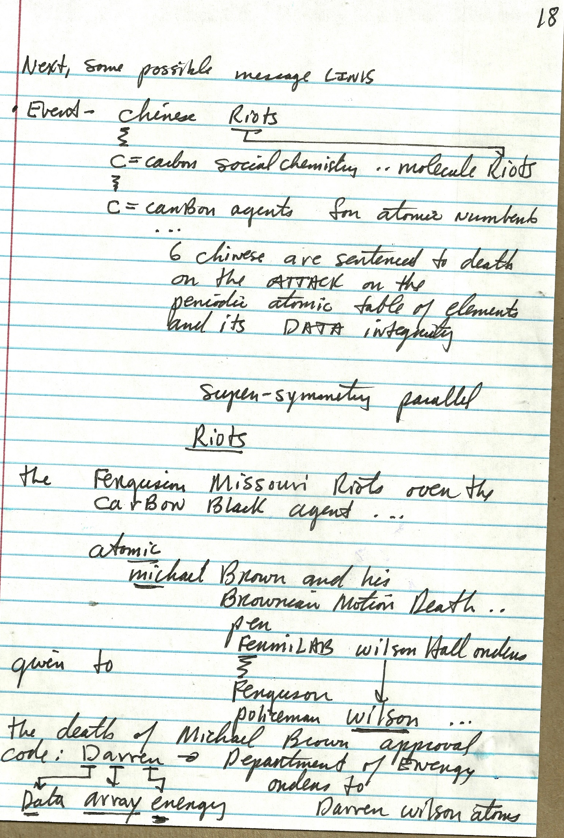 18
Next, some possible message LINKS
• Event - Chinese Riots
C = carbon social chemistry .. molecule Riots
C = carBon agents for atomic numbers
...
6 Chinese are sentenced to death
on the ATTACK on the
periodic atomic table of elements
and its DATA integrity
super-symmetry parallel
Riots
the Ferguson Missouri Riots over the
CarBon Black agent ...
atomic
michael Brown and his
Brownian Motion Death ..
per
FermiLAB Wilson Hall orders
given to
Ferguson
policeman wilson ...
the death of Michael Brown approval
code: Darren → Department of Energy
orders to
Data array energy Darren wilson atoms